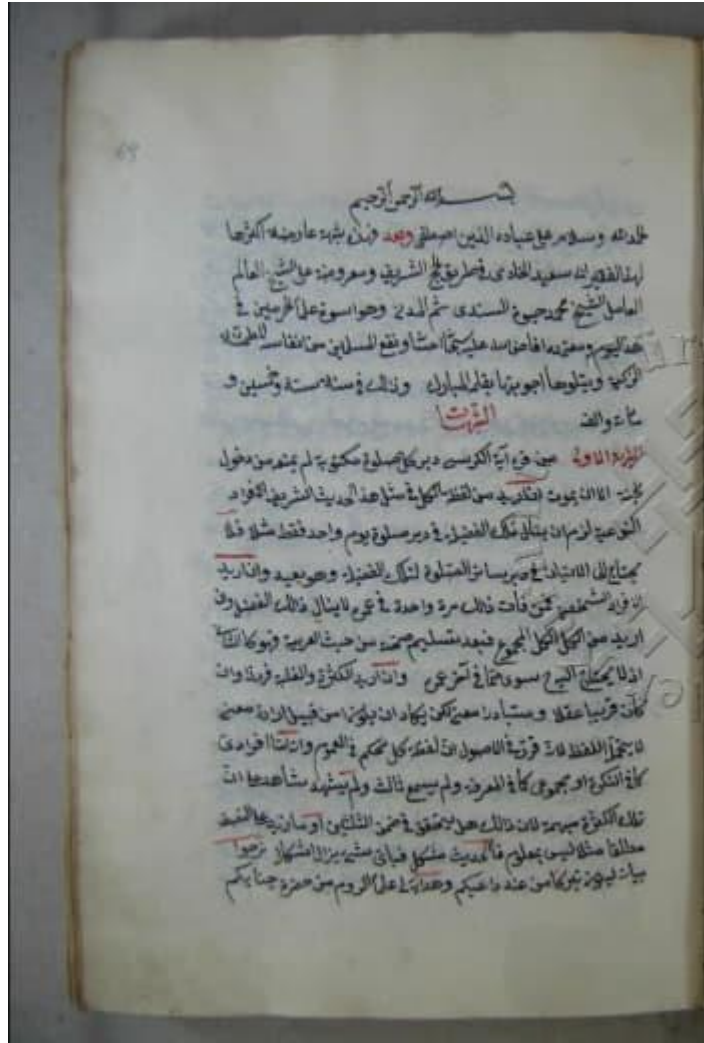 بسم الله الرحمن الرحيم
الحمد لله وسلام على عباده الذين اصطفى وبعد فهذه شبهة عارضة اكثرها
لهذا الفقير ابى سعيد الخادمى في طريق الحج الشريف ومعروضة على الشيخ العالم
العامل الشيخ محمد حيوة السندى ثم المدنى وهو اسوة علماء الحرمين في
هذا اليوم ومعتمده افاض الله عليه ونفع المسلمين من انفاسه
الزكية ويتلوها اجوبتها بقلمه المبارك وذلك في سنة ستة وخمسين و
مائة والف الشبهات
الشبهة الاولى من قرء آية الكرسى دبر كل صلوة مكتوبة لم يمنعه من دخول
الجنة الا ان يموت ان اريد من لفظ كل في مثل هذا الحديث الشريف الافراد
النوعية لزم ان ينال تلك الفضيلة في دبر صلوة يوم واحد فقط مثلا فلا
يحتاج الى الاتيان في دبر سائر الصلوة لتلك الفضيلة وهو بعيد وان اريد
الافراد الشخصية فمن فات ذلك مرة واحدة في عمره لا ينال ذلك الفضل وان
اريد من الكل الكل المجموعى فبعد تسليم صحته من حيث العربية فهو كالثانى
اذ لا يحتاج اليه سوى في آخر عمره وان اريد الكثرة والغلبة فهذا وان
كان قريبا عقلا ومتبادرا معنى لكن يكاد ان يكون من قبيل ارادة معنى
لا يتحمله اللفظ لان قرر في الاصول ان لفظ كل محكم في العموم وان اما افرادى
كما في النكرة او مجموعى كما في المعرفة ولم يسمع ثالث ولم يشهد شاهد على ان
تلك الكثرة مبهمة لان ذلك هل يتحقق في ضمن الثلثين او ما زيد على النصف
مطلقا مثلا ليس بمعلوم فالحديث مشكل فباى شىء يزال اشكاله نرجوا
بيانه من عند داعيكم وهداية الى علماء الروم من حضرة جنابكم